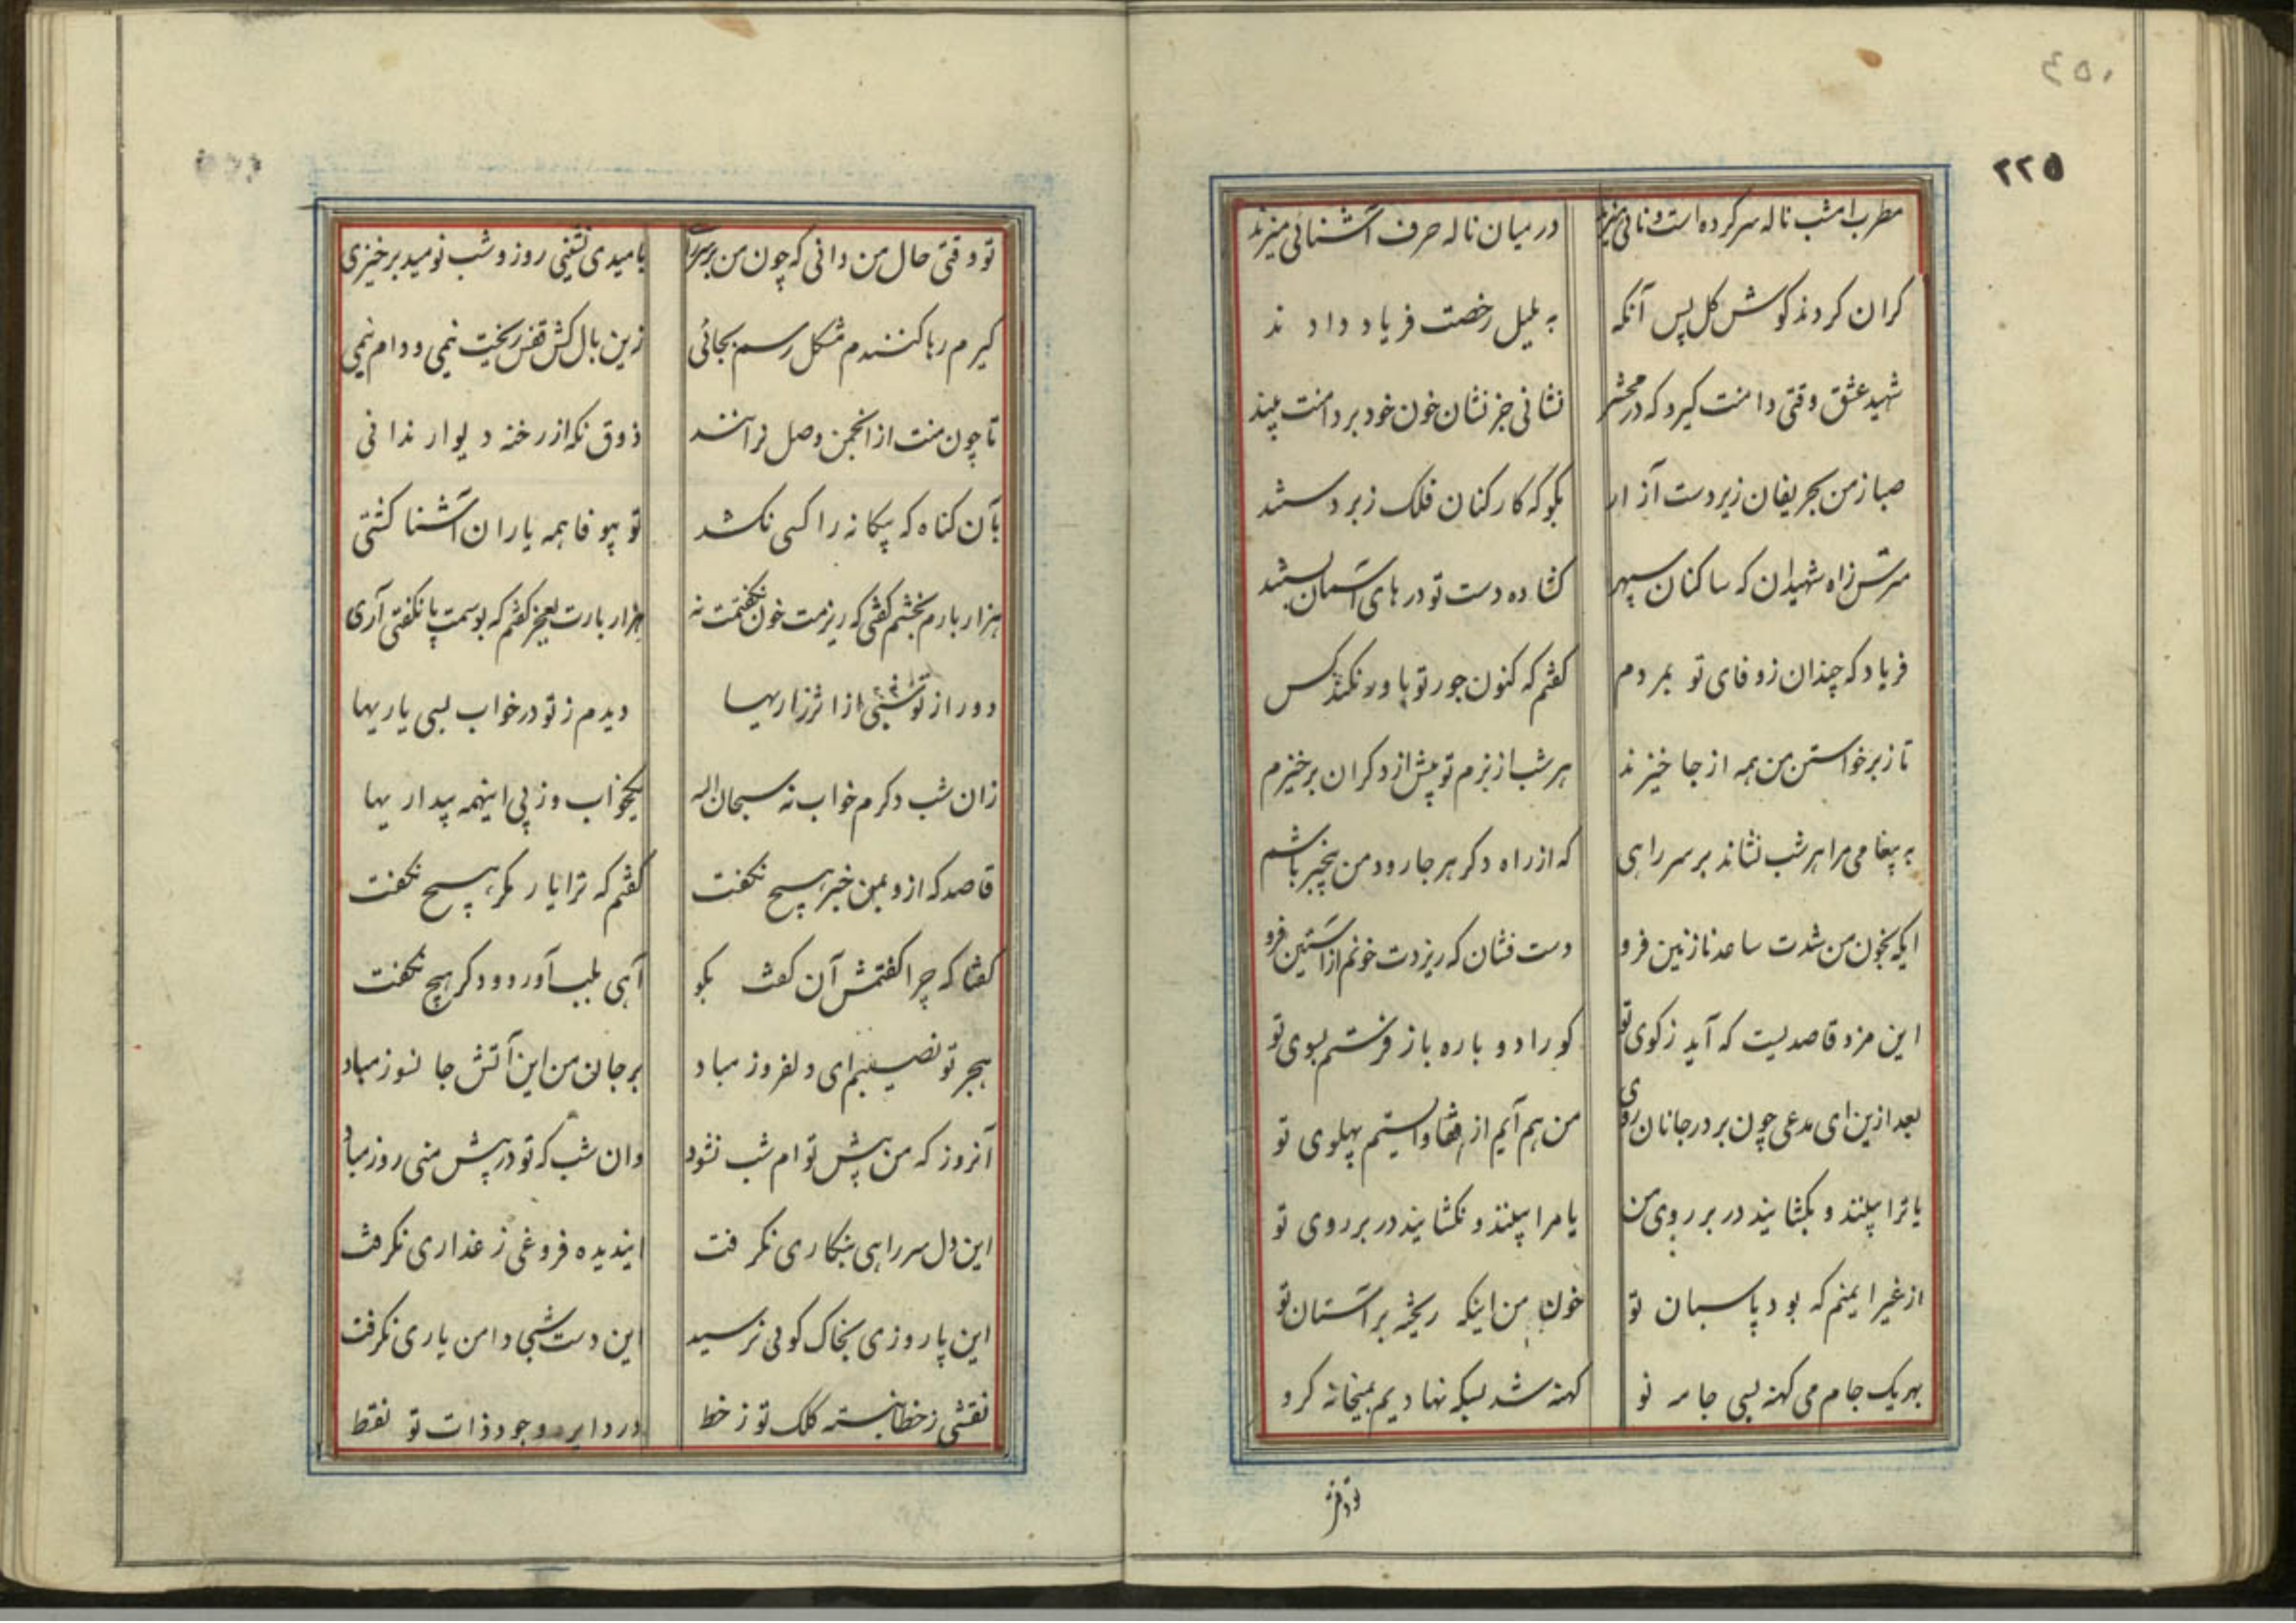 ۴۵۰
۲۲۵
مطرب امشب ناله سر کرده است و نائی میزند در میان ناله حرف آشنائی میزند
کران کردند کوش کل پس آنکه به بلبل رخصت فریاد دادند
شهید عشق وقتی دامنت کیرد که در محشر نشانی جز نشان خون خود بر دامنت بیند
صبا ز من بحریفان زیردست آزار بکو که کارکنان فلک زبردستند
مترس ز آه شهیدان که ساکنان سپهر کشاده دست تو درهای آسمان بستند
فریاد که چندان ز وفای تو بمردم کفتم که کنون جور تو باور نکند کس
تا ز برخواستن من همه از جا خیزند هر شب از بزم تو پیش از دکران برخیزم
به پیغامی مرا هر شب نشاند بر سر راهی که از راه دکر هر جا رود من بیخبر باشم
ایکه بخون من شدت ساعد نازنین فرو دست فشان که ریزدت خونم از آستین فرو
این مزد قاصدیست که آید ز کوی تو کو را دوباره باز فرستم بسوی تو
بعد ازین ای مدعی چون بر در جانان روی من هم آیم از قفا و ایستم پهلوی تو
یا ترا بینند و بکشایند در بر روی من یا مرا بینند و نکشایند در بر روی تو
از غیر ایمنم که بود پاسبان تو خون من اینکه ریخته بر آستان تو
بهر یک جام می کهنه بسی جامه نو کهنه شد بسکه نهادیم بمیخانه کرو
تو وقتی
تو وقتی حال من دانی که چون من بر سر بامیدی نشینی روز و شب نومید برخیزی
کیرم رها کنندم مشکل رسم بجائی زین بال کش قفس ریخت نیمی و دام نیمی
تا چون منت از انجمن وصل نرانند ذوق نکه از رخنه دیوار ندانی
بآن کناه که بیکانه را کسی نکشد تو بیوفا همه یاران آشنا کشتی
هزار بارم بخشم کفتی که ریزمت خون نکفتمت نه هزار بارت بعجز کفتم که بوسمت پا نکفتی آری
دور از تو شبی از اثر زاریها دیدم ز تو در خواب بسی یاریها
زان شب دکرم خواب نه سبحان الله یکخواب و ز پی اینهمه بیداریها
قاصد که ازو بمن خبر هیچ نکفت کفتم که ترا یار مکر هیچ نکفت
کفتا که چرا کفتمش آن کفت بکو آهی بلب آورد و دکر هیچ نکفت
هجر تو نصیبم ای دلفروز مباد بر جان من این آتش جانسوز مباد
آنروز که من پیش توام شب نشود وان شب که تو در پیش منی روز مباد
این دل سر راهی بنکاری نکرفت ایندیده فروغی ز عذاری نکرفت
این پا روزی بخاک کوئی نرسید این دست شبی دامن یاری نکرفت
نقشی ز خطا نبسته کلک تو ز خط در دایره وجود ذات تو نقط